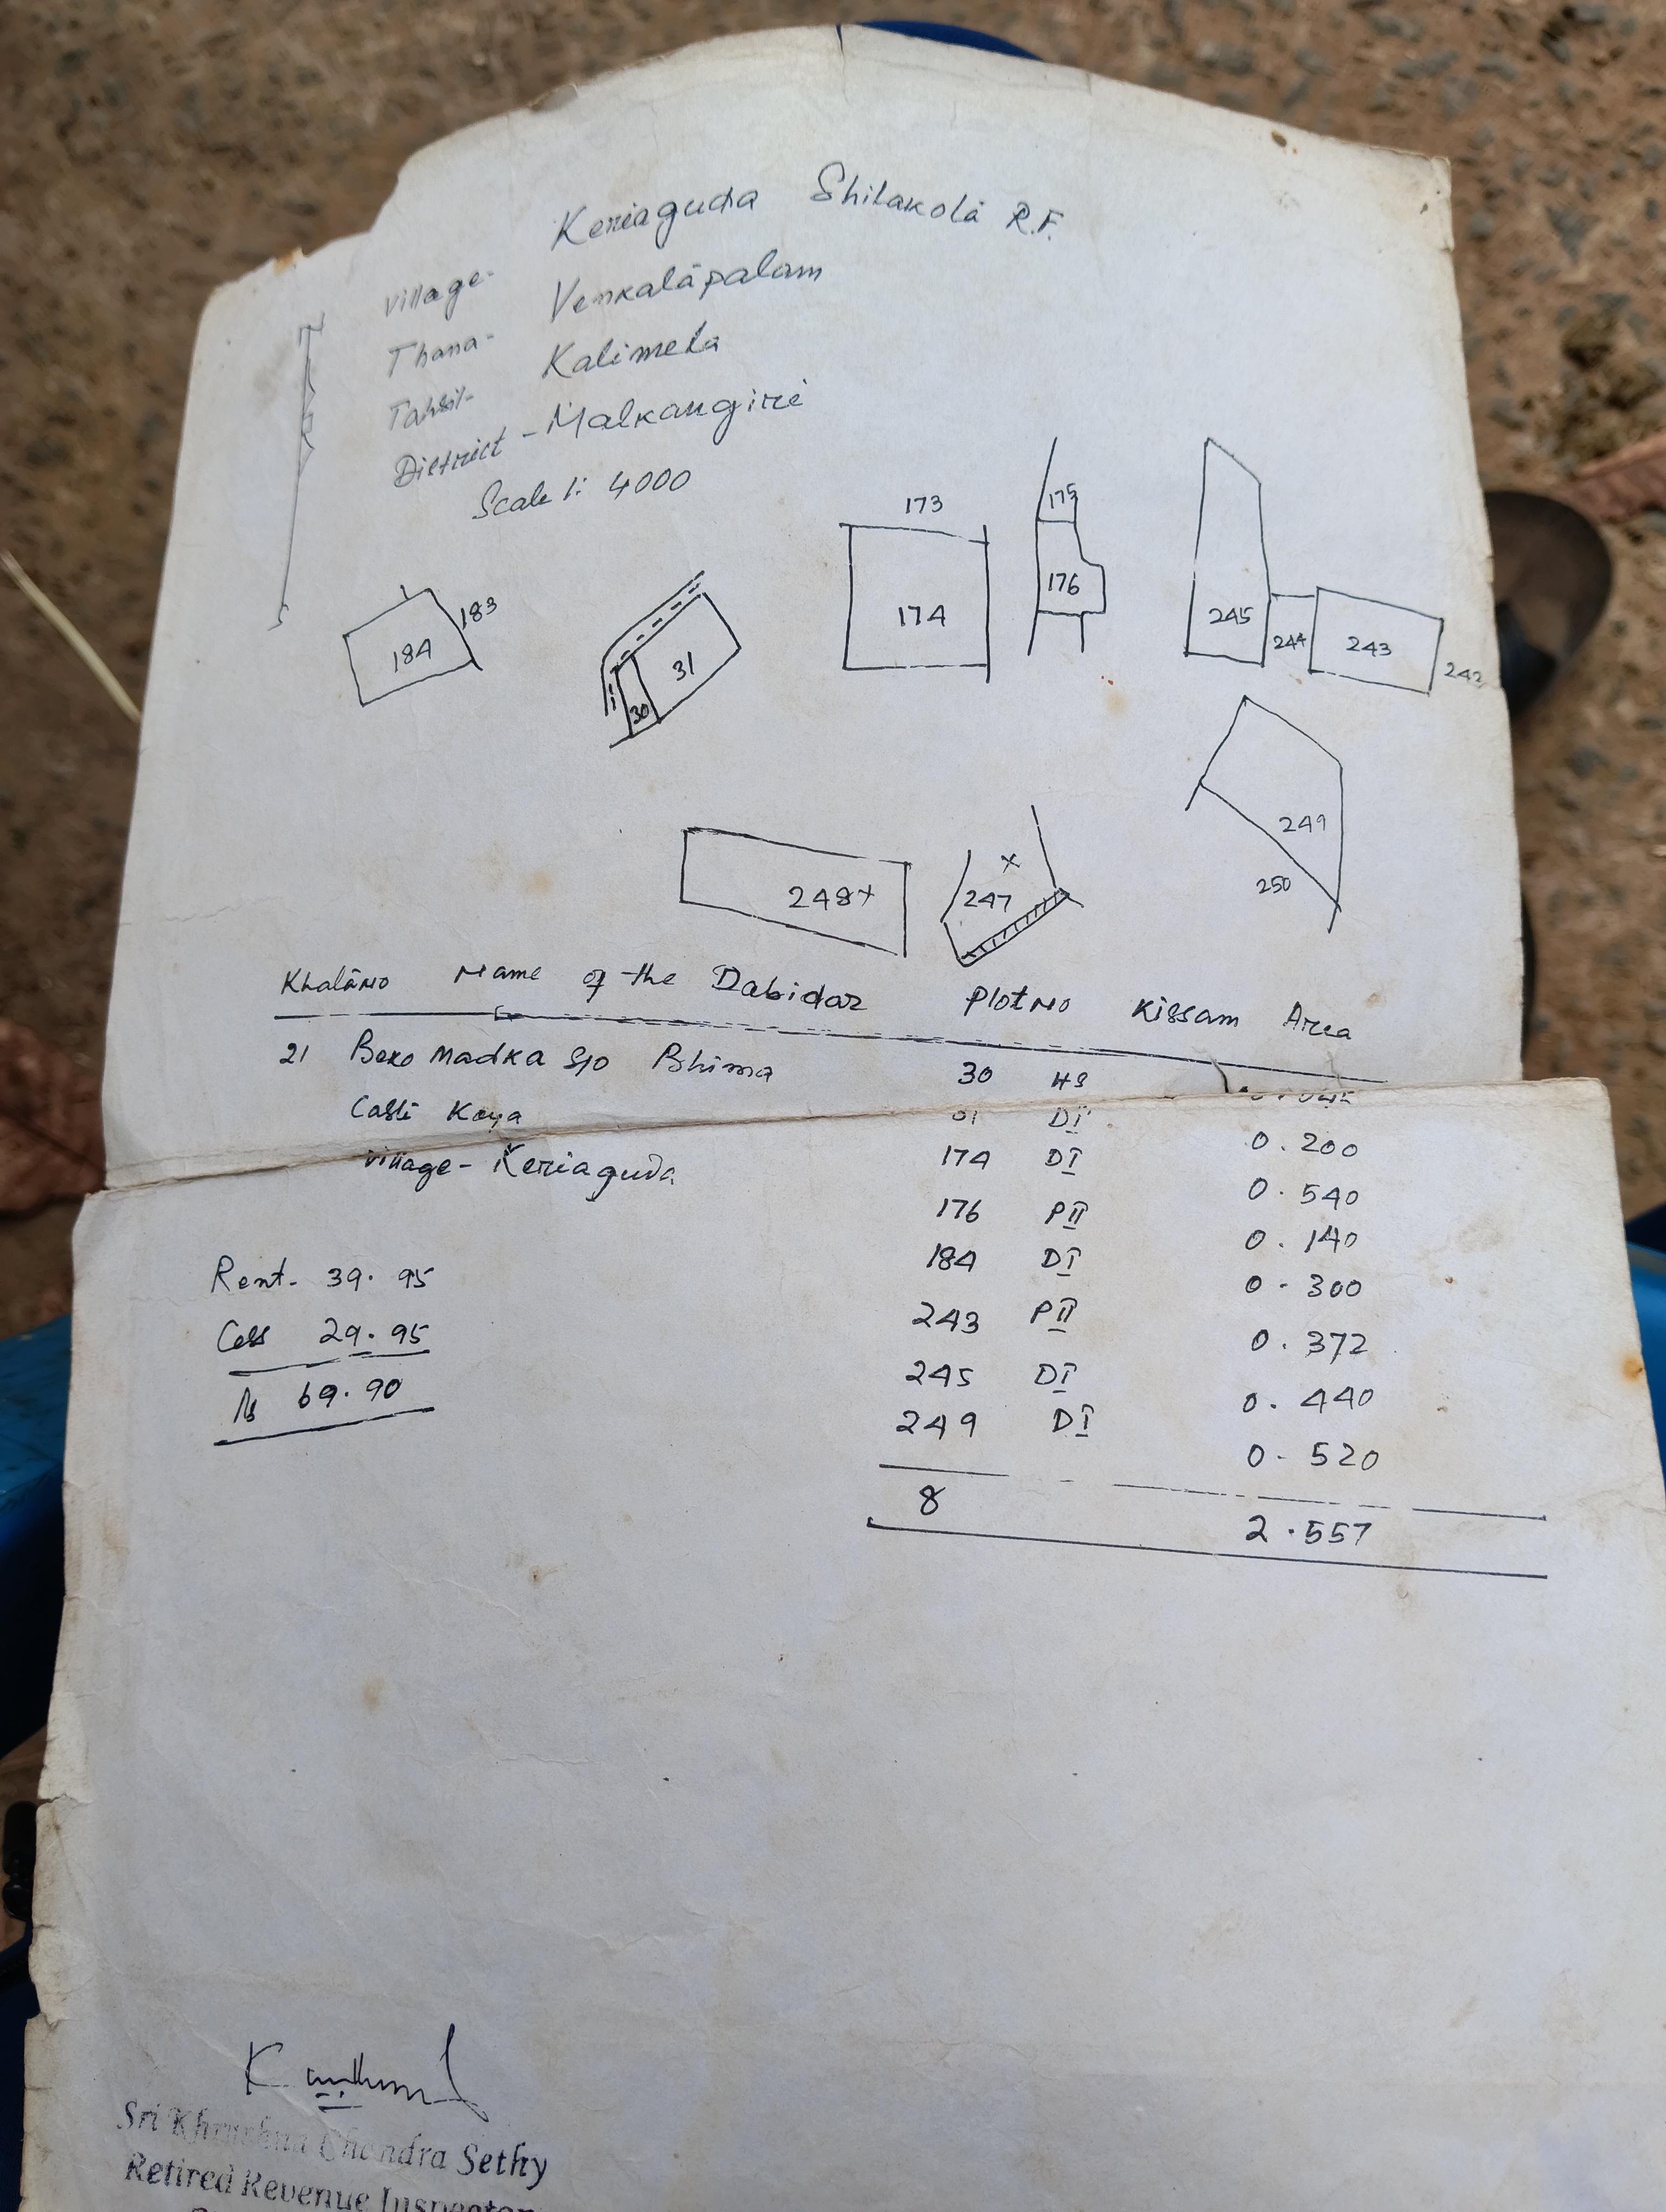 Keriaguda Shilakota R.F.
Village-
Thana- Venkatapalam
Tahsil- Kalimela
District - Malkangiri
Scale 1: 4000
173
174
175
176
245
244
243
242
184
183
31
30
249
250
248+
247
x
Khata No Name of the Dabidar Plot No Kissam Area
21 Bero Madka S/o Bhima 30 HS
Caste Koya DI
Village- Keriaguda
0.200
174 DI 0.540
176 PII 0.140
184 DI 0.300
243 PII 0.372
245 DI 0.440
249 DI 0.520
8 2.557
Rent- 39.95
Cess 29.95
Rs 69.90
Sri Khrushna Chandra Sethy
Retired Revenue Inspector